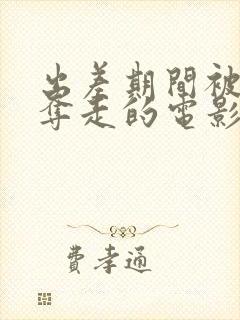 出差期間被
奪走的電影
費孝通